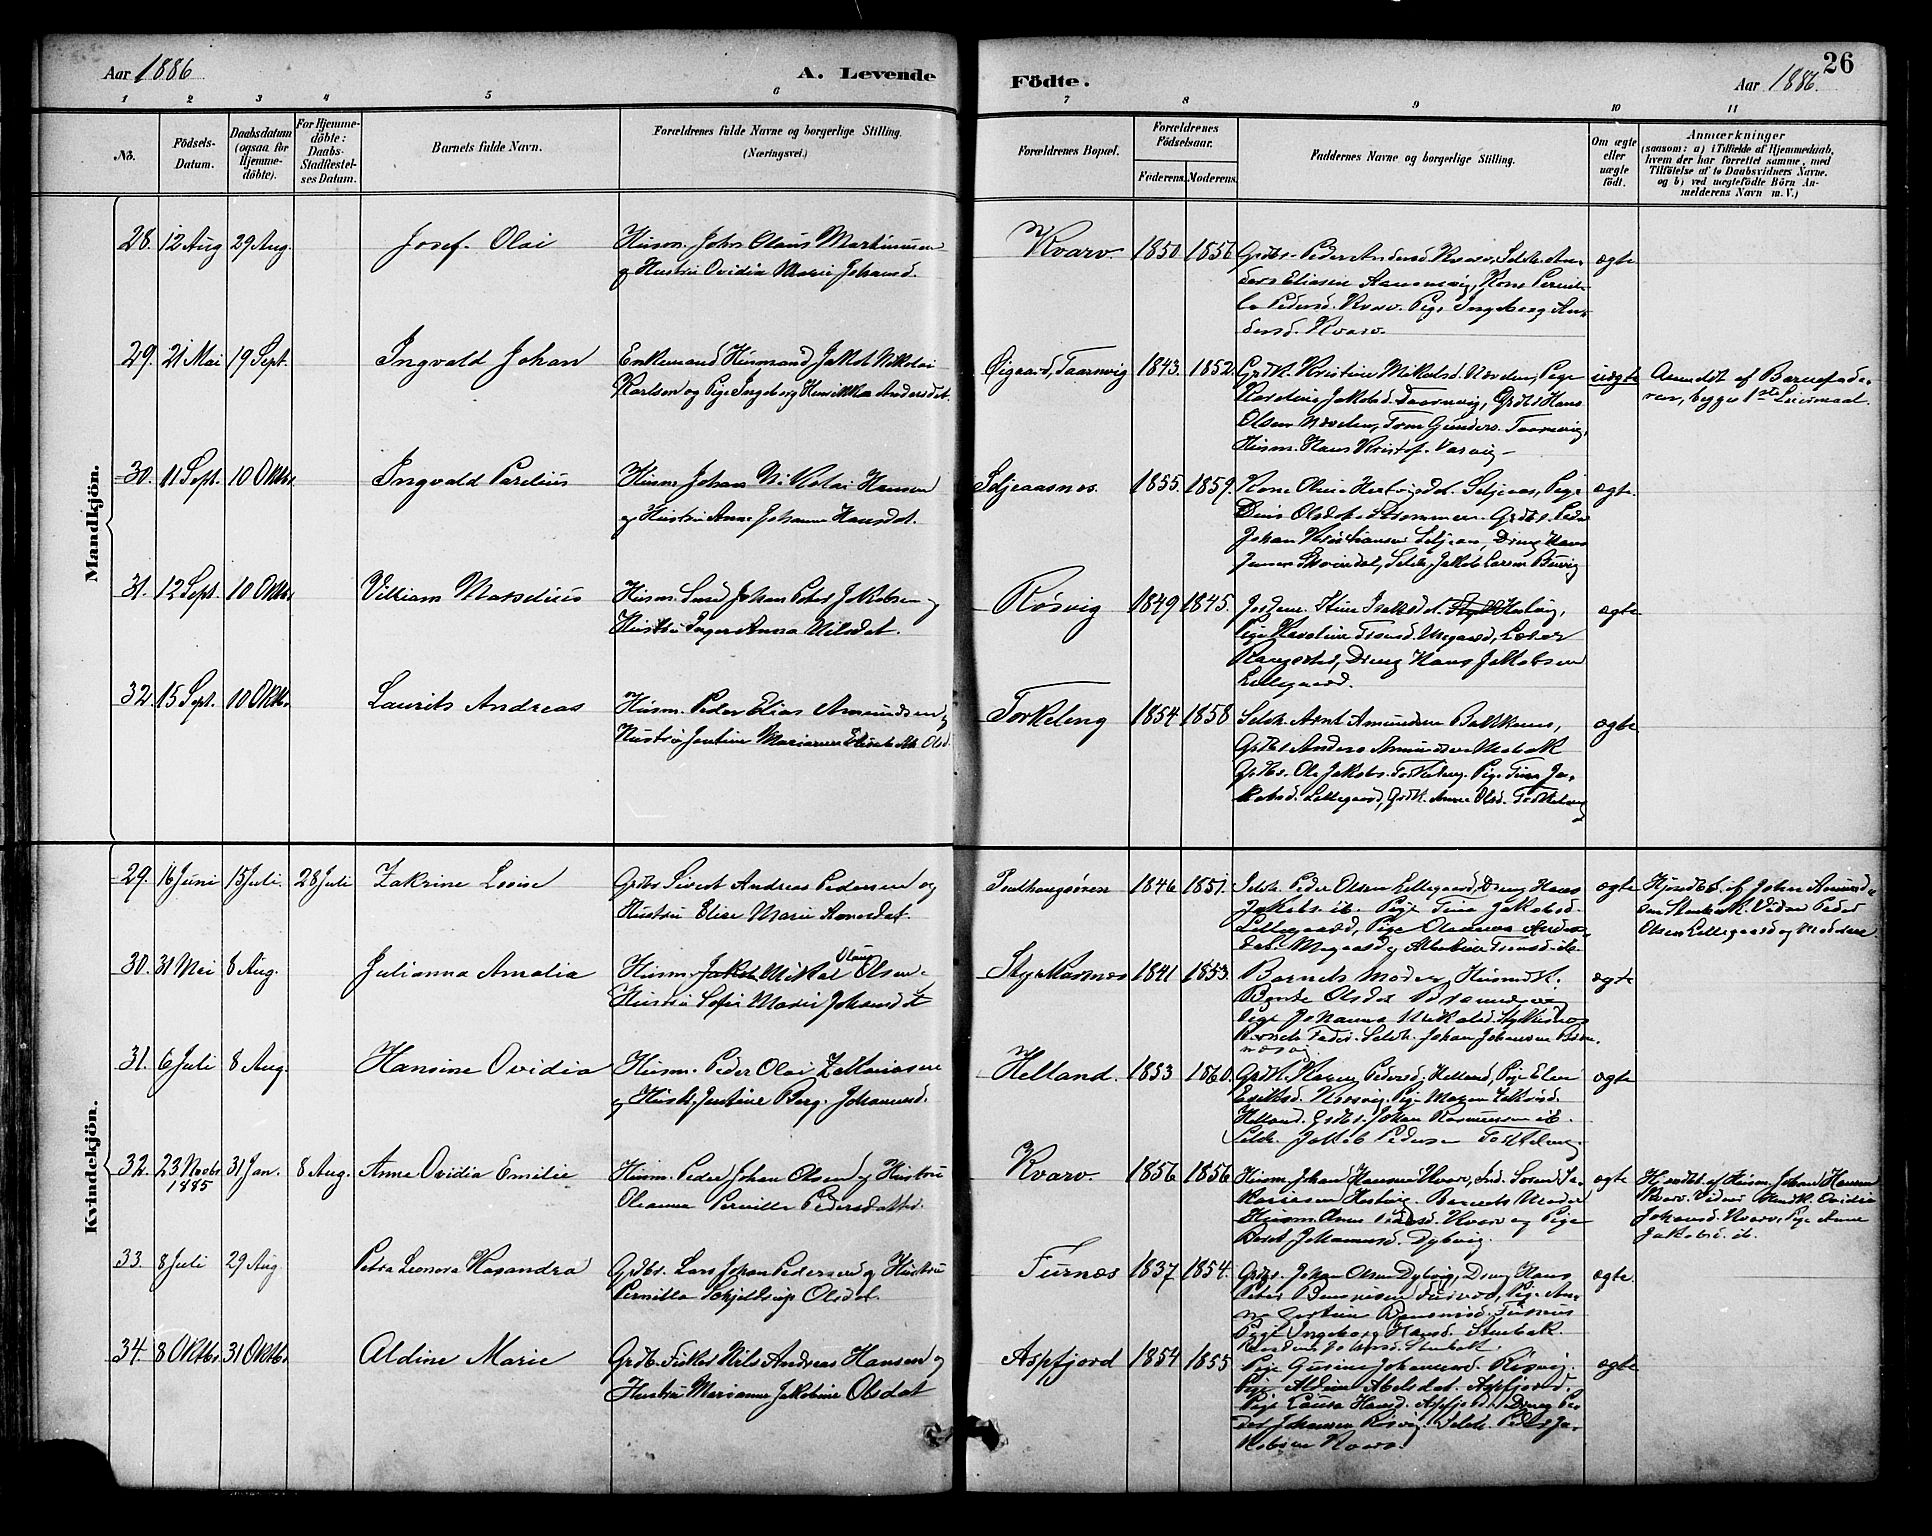 Aar 1886.
A. Levende
Födte.
Aar 1886.
26
1 2 3 4 5 6 7 8 9 10 11
No.
Födsels-
Datum.
Daabsdatum
(ogsaa for
Hjemme-
döbte).
For Hjemme-
döbte:
Daabs-
Stadfæstel-
ses Datum.
Barnets fulde Navn.
Forældrenes fulde Navne og borgerlige Stilling.
(Næringsvei.)
Forældrenes Bopæl.
Forældrenes
Födselsaar.
Faderens. Moderens.
Faddernes Navne og borgerlige Stilling.
Om ægte
eller
uægte
født.
Anmærkninger
(saasom: a) i Tilfælde af Hjemmedaab,
hvem der har forrettet samme, med
Tilföielse af to Daabsvidners Navne.
og b) ved uægtefödte Börn An-
melderens Navn m. V.)
Mandkjön.
28. 12 Aug 29 Aug. Josef Olai
Husm. Johs Olaus Martinusen
og Hustru Ovidia Marie Johansd.
Kvarv 1850 1856
Grdbr. Peder Andersd. Kvarv, Selvh. An-
ders Eliasen
Pedersd. Kvarv. Pige Ingeborg An-
dersd. Kvarv.
ægte
29. 21 Mai 19 Sept. Ingvald Johan
Enkemand Husmand Jakob Nikolai
Karlsen og Pige Ingeborg Henrikka Andersdat.
Øigaard, Taarnvig 1843. 1852.
Grdk. Kristine Mikalsd. Nævelen, Pige
Karoline Jakobsd. Taarnvig, Grdbr Hans
Olsen Nævelen, Tron Gunders. Taarnvig,
Husm. Hans Kristof. Varvig
uægte
Anmeldt af Barnefade-
ren, begges 1ste Leiermaal.
30. 11 Sept. 10 Oktbr. Ingvald Parelius
Husm. Johan Nikolai Hansen
og Hustru Anne Johanna Hansdat.
Seljeaasnes. 1855. 1859.
Kone Oline Hertvigsdat. Seljeaas, Pige
Olsdat. Strømmen. Grdbr. Peder
Johan Kristiansen Seljeaas, Dreng Hans
Jensen Skovindal, Selvh. Jakob Larsen Buvig
ægte.
31. 12 Sept. 10 Oktbr. Villiam Marselius
Husm. Smed Johan Peter Jakobsen og
Hustru Inger Anna Nilsdat.
Røsvig 1849 1845.
Jordem. Stine Isaksdat.
Pige Karoline Tronsd. Megaard, Lærer
Rangstad, Dreng Hans Jakobsen
Lillegaard.
ægte
32 15 Sept. 10 Oktbr. Laurits Andreas
Husm. Peder Elias Amundsen og
Hustru Jentine Marianne Elisabeth Olsd.
Torkeleng 1854 1858
Selvh. Arnt Amundsen Bakken,
Grdbr Anders Amundsen Stenbak
Grdbr. Ole Jakobs. Torkeleng. Pige Tina Ja-
kobsd. Lillegaard, Grdk. Anne Olsd. Torkeleng
ægte
Kvindekjön.
29. 16 Juni 15 Juli. 28 Juli Zakrine Lovise
Grdbr Sivert Andreas Pedersen og
Hustru Elise Marie Aronsdat.
1846 1851.
Selvh. Peder Olsen Lillegaard, Dreng Hans
Jakobs. ib. Pige Tina Jakobsd.
Lillegaard, Pige Oleanna Anders-
dat. Megaard og Albertine Tronsd. ib.
ægte
Hjemdbt. af John Amund-
sen Stenbak. Vidner Peder
Olsen Lillegaard og Moderen.
30. 31 Mai 8 Aug. Julianna Amalia
Husm. Jakob Mikal Olaus Olsen.
Hustru Sofie Marie Johansdat
Styrkesnes 1841 1853.
Barnets Moder, Husmdk.
Bente Olsdat
Pige Johanna Mikalsd. Styrkesnes
Barnets Fader. Selvh. Johan Johansen
ægte
31. 6 Juli 8 Aug. Hansine Ovidia
Husm. Peder Olai Zakariasen
og Hustr. Jentine Berg. Johansd.
Helland. 1853 1860.
Grdk. Karen Pedersd. Helland, Pige Elen
Eriksd. Røsvig, Pige Maren
Helland. Grdbr. Johan Rasmussen ib.
Selvh. Jakob Pedersen Torkeleng
ægte
32. 23 Novbr. 1885 31 Jan. 8 Aug. Anne Ovidia Emilie
Husm. Peder Johan Olsen og Hustru
Oleanna Pernille Pedersdatter.
Kvarv. 1856 1856
Husm. Johan Hansen Kvarv, Ind. Søren Za-
kariasen Hestvig. Barnets Moder
Husm. Pedersd. Kvarv og Pige
Berit Johannesd. Dybvig.
ægte
Hjemdbt. af Husm. Johan Hansen
Kvarv. Vidner Ovidia
Johansd. Kvarv, Pige Anne
Jakobsd. ib.
33. 8 Juli 29 Aug. Petra Leonora Kasandra
Grdbr. Lars Johan Pedersen og Hustru
Pernilla Skjeldrup Olsdat.
Furnæs 1837 1854.
Grdbr. Johan Olsen Dybvig, Dreng Hans
Peter Furnes, Pige An-
Furnæs
Pige Ingeborg Hansd. Stenbak.
ægte.
34. 8 Oktbr. 31 Oktbr. Aldine Marie
Grdb. Fisker Nils Andreas Hansen og
Hustru Marianne Jakobine Olsdat
Aspfjord 1854 1855
Pige Gusine Johansd. Røsvig.
Pige Aldine Abelsdat. Aspfjord,
Pige Laura Hansd. Aspfjord, Dreng Pe-
der Johansen Røsvig. Selvh. Peder Ja-
kobsen Kvarv.
ægte